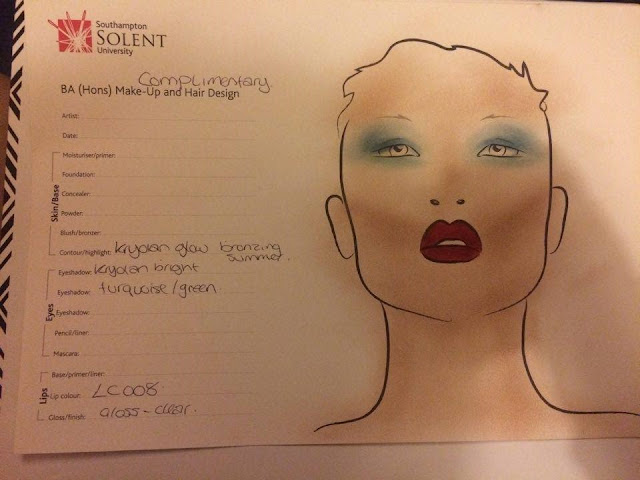 Southampton
SOLENT
University
Complimentary
BA (Hons) Make-Up and Hair Design
Artist:
Date:
Skin/Base
Moisturiser/primer:
Foundation:
Concealer:
Powder:
Blush/bronzer:
Contour/highlight: Kryolan glow bronzing
summer.
Eyes
Eyeshadow: Kryolan bright
Eyeshadow: turquoise/green
Eyeshadow:
Pencil/liner:
Mascara:
Lips
Base/primer/liner:
Lip colour: LC008.
Gloss/finish: Gloss - clear.